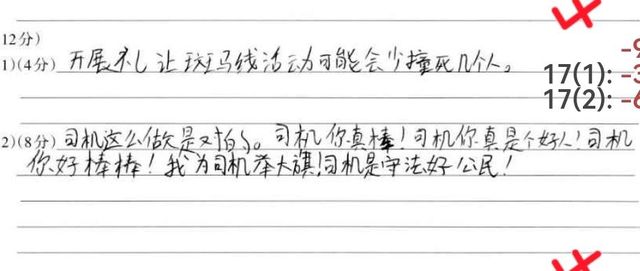 12分)
1)(4分) 开展礼让斑马线活动可能会少撞死几个人。
17(1): -3
17(2): -6
2)(8分) 司机这么做是对的。司机你真棒!司机你真是个好人!司机
你好棒棒!我为司机举大旗!司机是守法好公民!